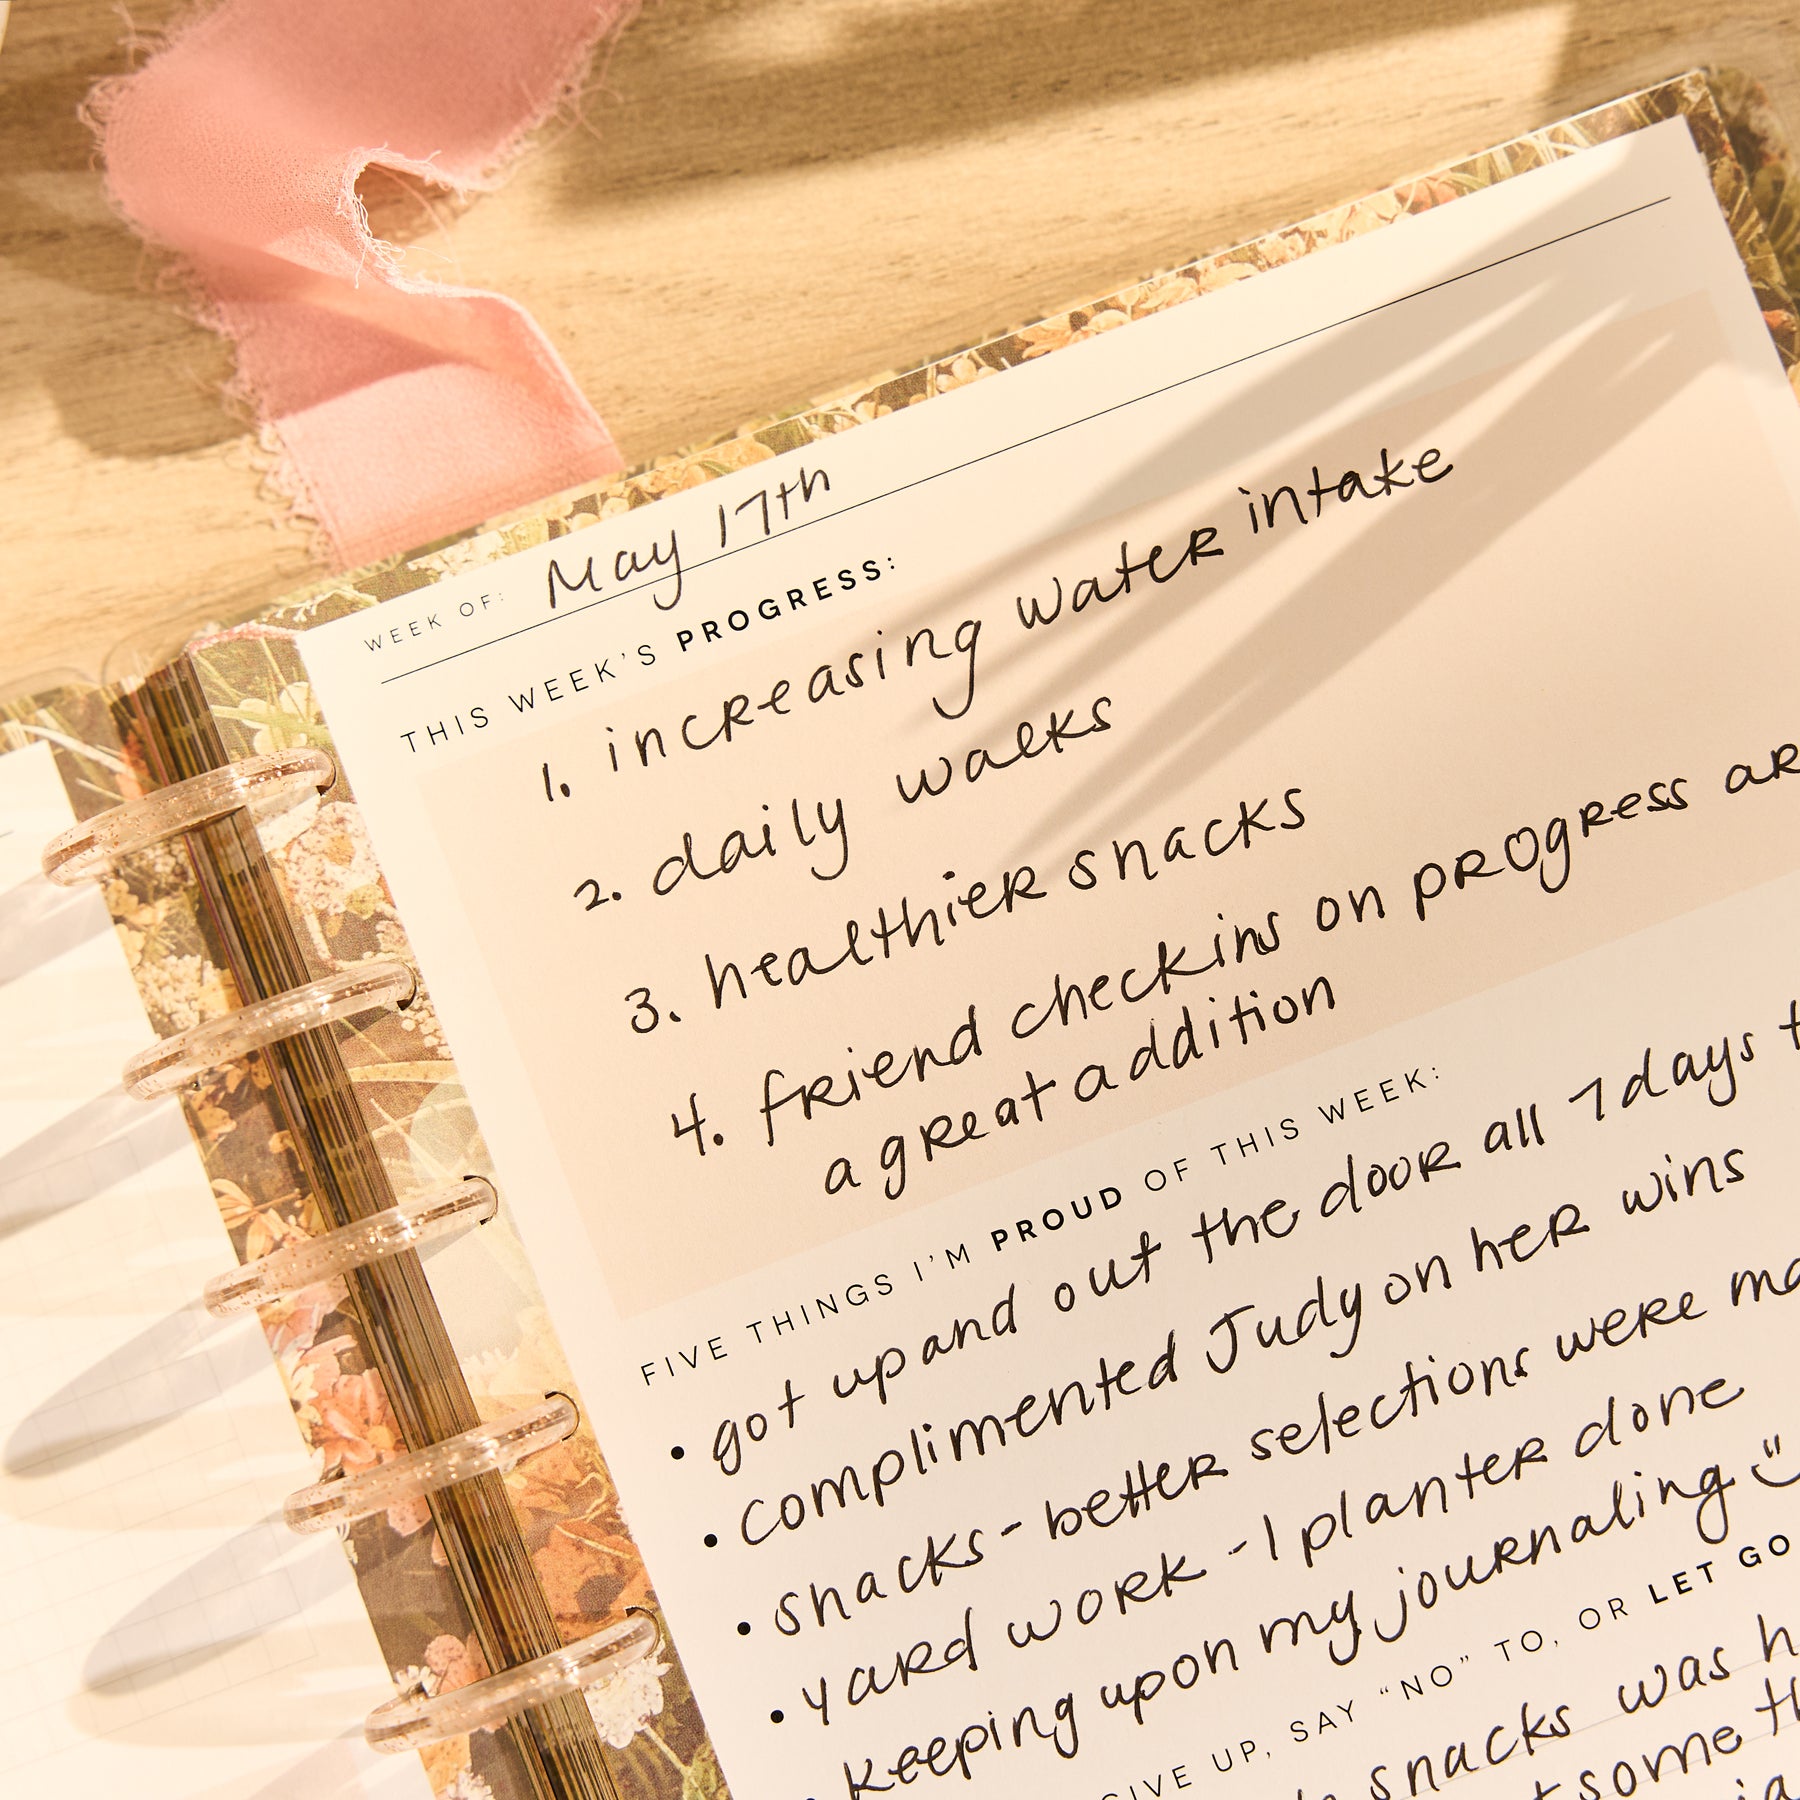 WEEK OF: May 17th
THIS WEEK'S PROGRESS:
1. increasing water intake
2. daily walks
3. healthier snacks
4. friend checkins on progress
a great addition
FIVE THINGS I'M PROUD OF THIS WEEK:
• got up and out the door all 7 days
• complimented Judy on her wins
• snacks - better selections were
• yard work - 1 planter done
• keeping upon my journaling
GIVE UP, SAY “NO” TO, OR LET GO
snacks was